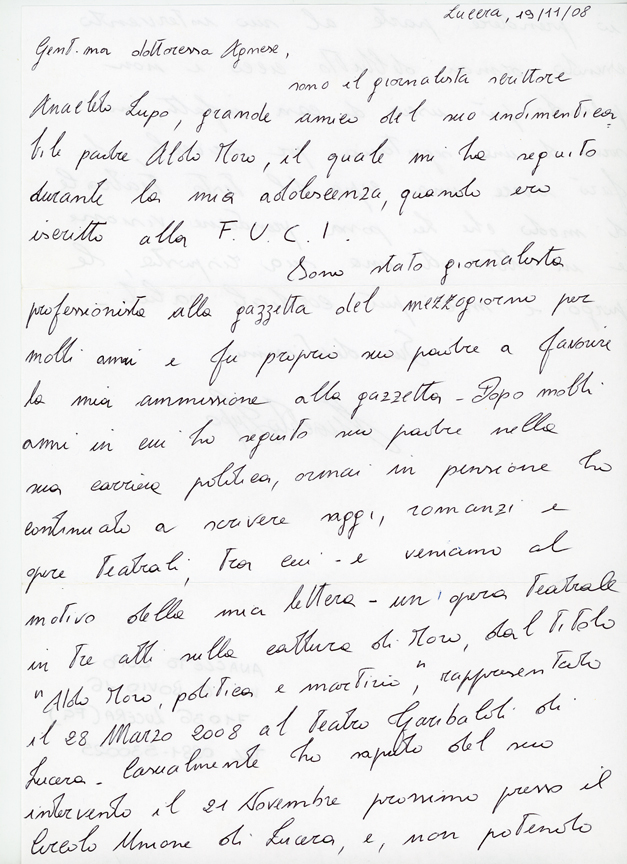 Lucera, 19/11/08
Gent.ma dottoressa Agnese,
sono il giornalista scrittore
Anacleto Lupo, grande amico del suo indimentica
bile padre Aldo Moro, il quale mi ha seguito
durante la mia adolescenza, quando ero
iscritto alla F.U.C.I.
Sono stato giornalista
professionista alla gazzetta del mezzogiorno per
molti anni e fu proprio suo padre a favorire
la mia ammissione alla gazzetta - Dopo molti
anni in cui ho seguito suo padre nella
sua carriera politica, ormai in pensione ho
continuato a scrivere saggi, romanzi e
opere teatrali, tra cui - e veniamo al
motivo della mia lettera - un' opera teatrale
in tre atti sulla cattura di Moro, dal titolo
"Aldo Moro, politica e martirio", rappresentato
il 28 Marzo 2008 al Teatro Garibaldi di
Lucera - Casualmente ho saputo del suo
intervento il 21 Novembre prossimo presso il
Circolo Unione di Lucera, e, non potendo